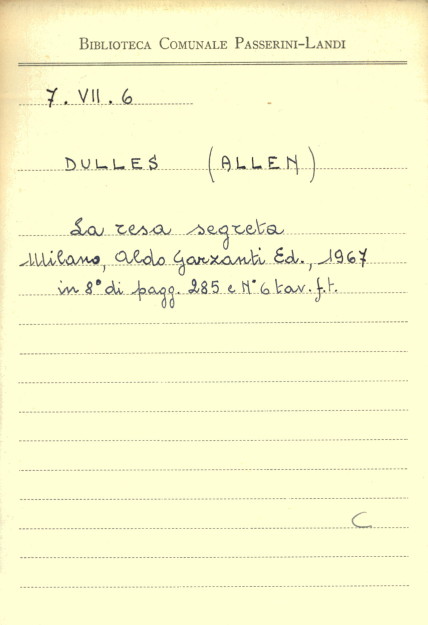 BIBLIOTECA COMUNALE PASSERINI-LANDI
7. VII. 6
DULLES (ALLEN)
La resa segreta
Milano, Aldo Garzanti Ed., 1967
in 8° di pagg. 285 e N° 6 tav. f.t.
C